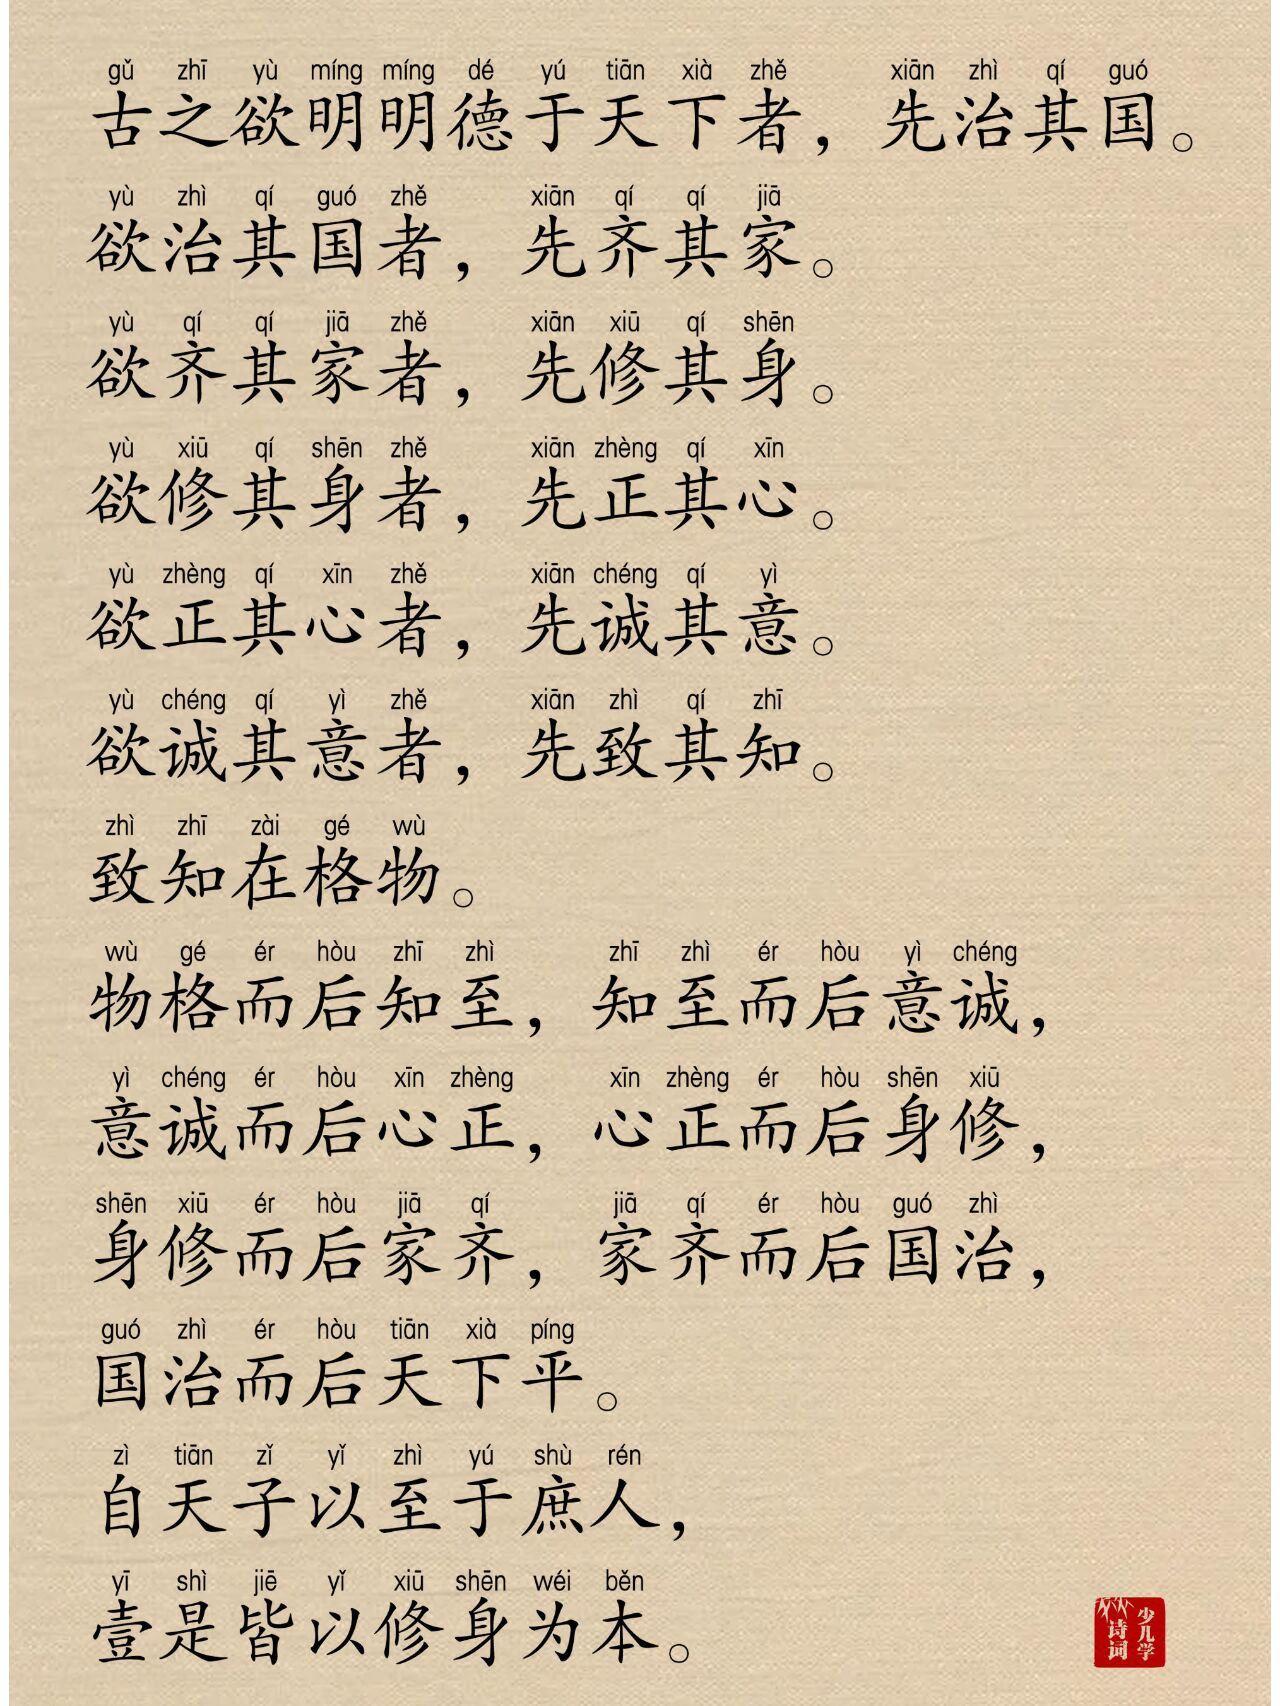 gǔ zhī yù míng míng dé yú tiān xià zhě xiān zhì qí guó
古之欲明明德于天下者，先治其国。
yù zhì qí guó zhě xiān qí qí jiā
欲治其国者，先齐其家。
yù qí qí jiā zhě xiān xiū qí shēn
欲齐其家者，先修其身。
yù xiū qí shēn zhě xiān zhèng qí xīn
欲修其身者，先正其心。
yù zhèng qí xīn zhě xiān chéng qí yì
欲正其心者，先诚其意。
yù chéng qí yì zhě xiān zhì qí zhī
欲诚其意者，先致其知。
zhì zhī zài gé wù
致知在格物。
wù gé ér hòu zhī zhì zhī zhì ér hòu yì chéng
物格而后知至，知至而后意诚，
yì chéng ér hòu xīn zhèng xīn zhèng ér hòu shēn xiū
意诚而后心正，心正而后身修，
shēn xiū ér hòu jiā qí jiā qí ér hòu guó zhì
身修而后家齐，家齐而后国治，
guó zhì ér hòu tiān xià píng
国治而后天下平。
zì tiān zǐ yǐ zhì yú shù rén
自天子以至于庶人，
yī shì jiē yǐ xiū shēn wéi běn
壹是皆以修身为本。
少儿学
诗词